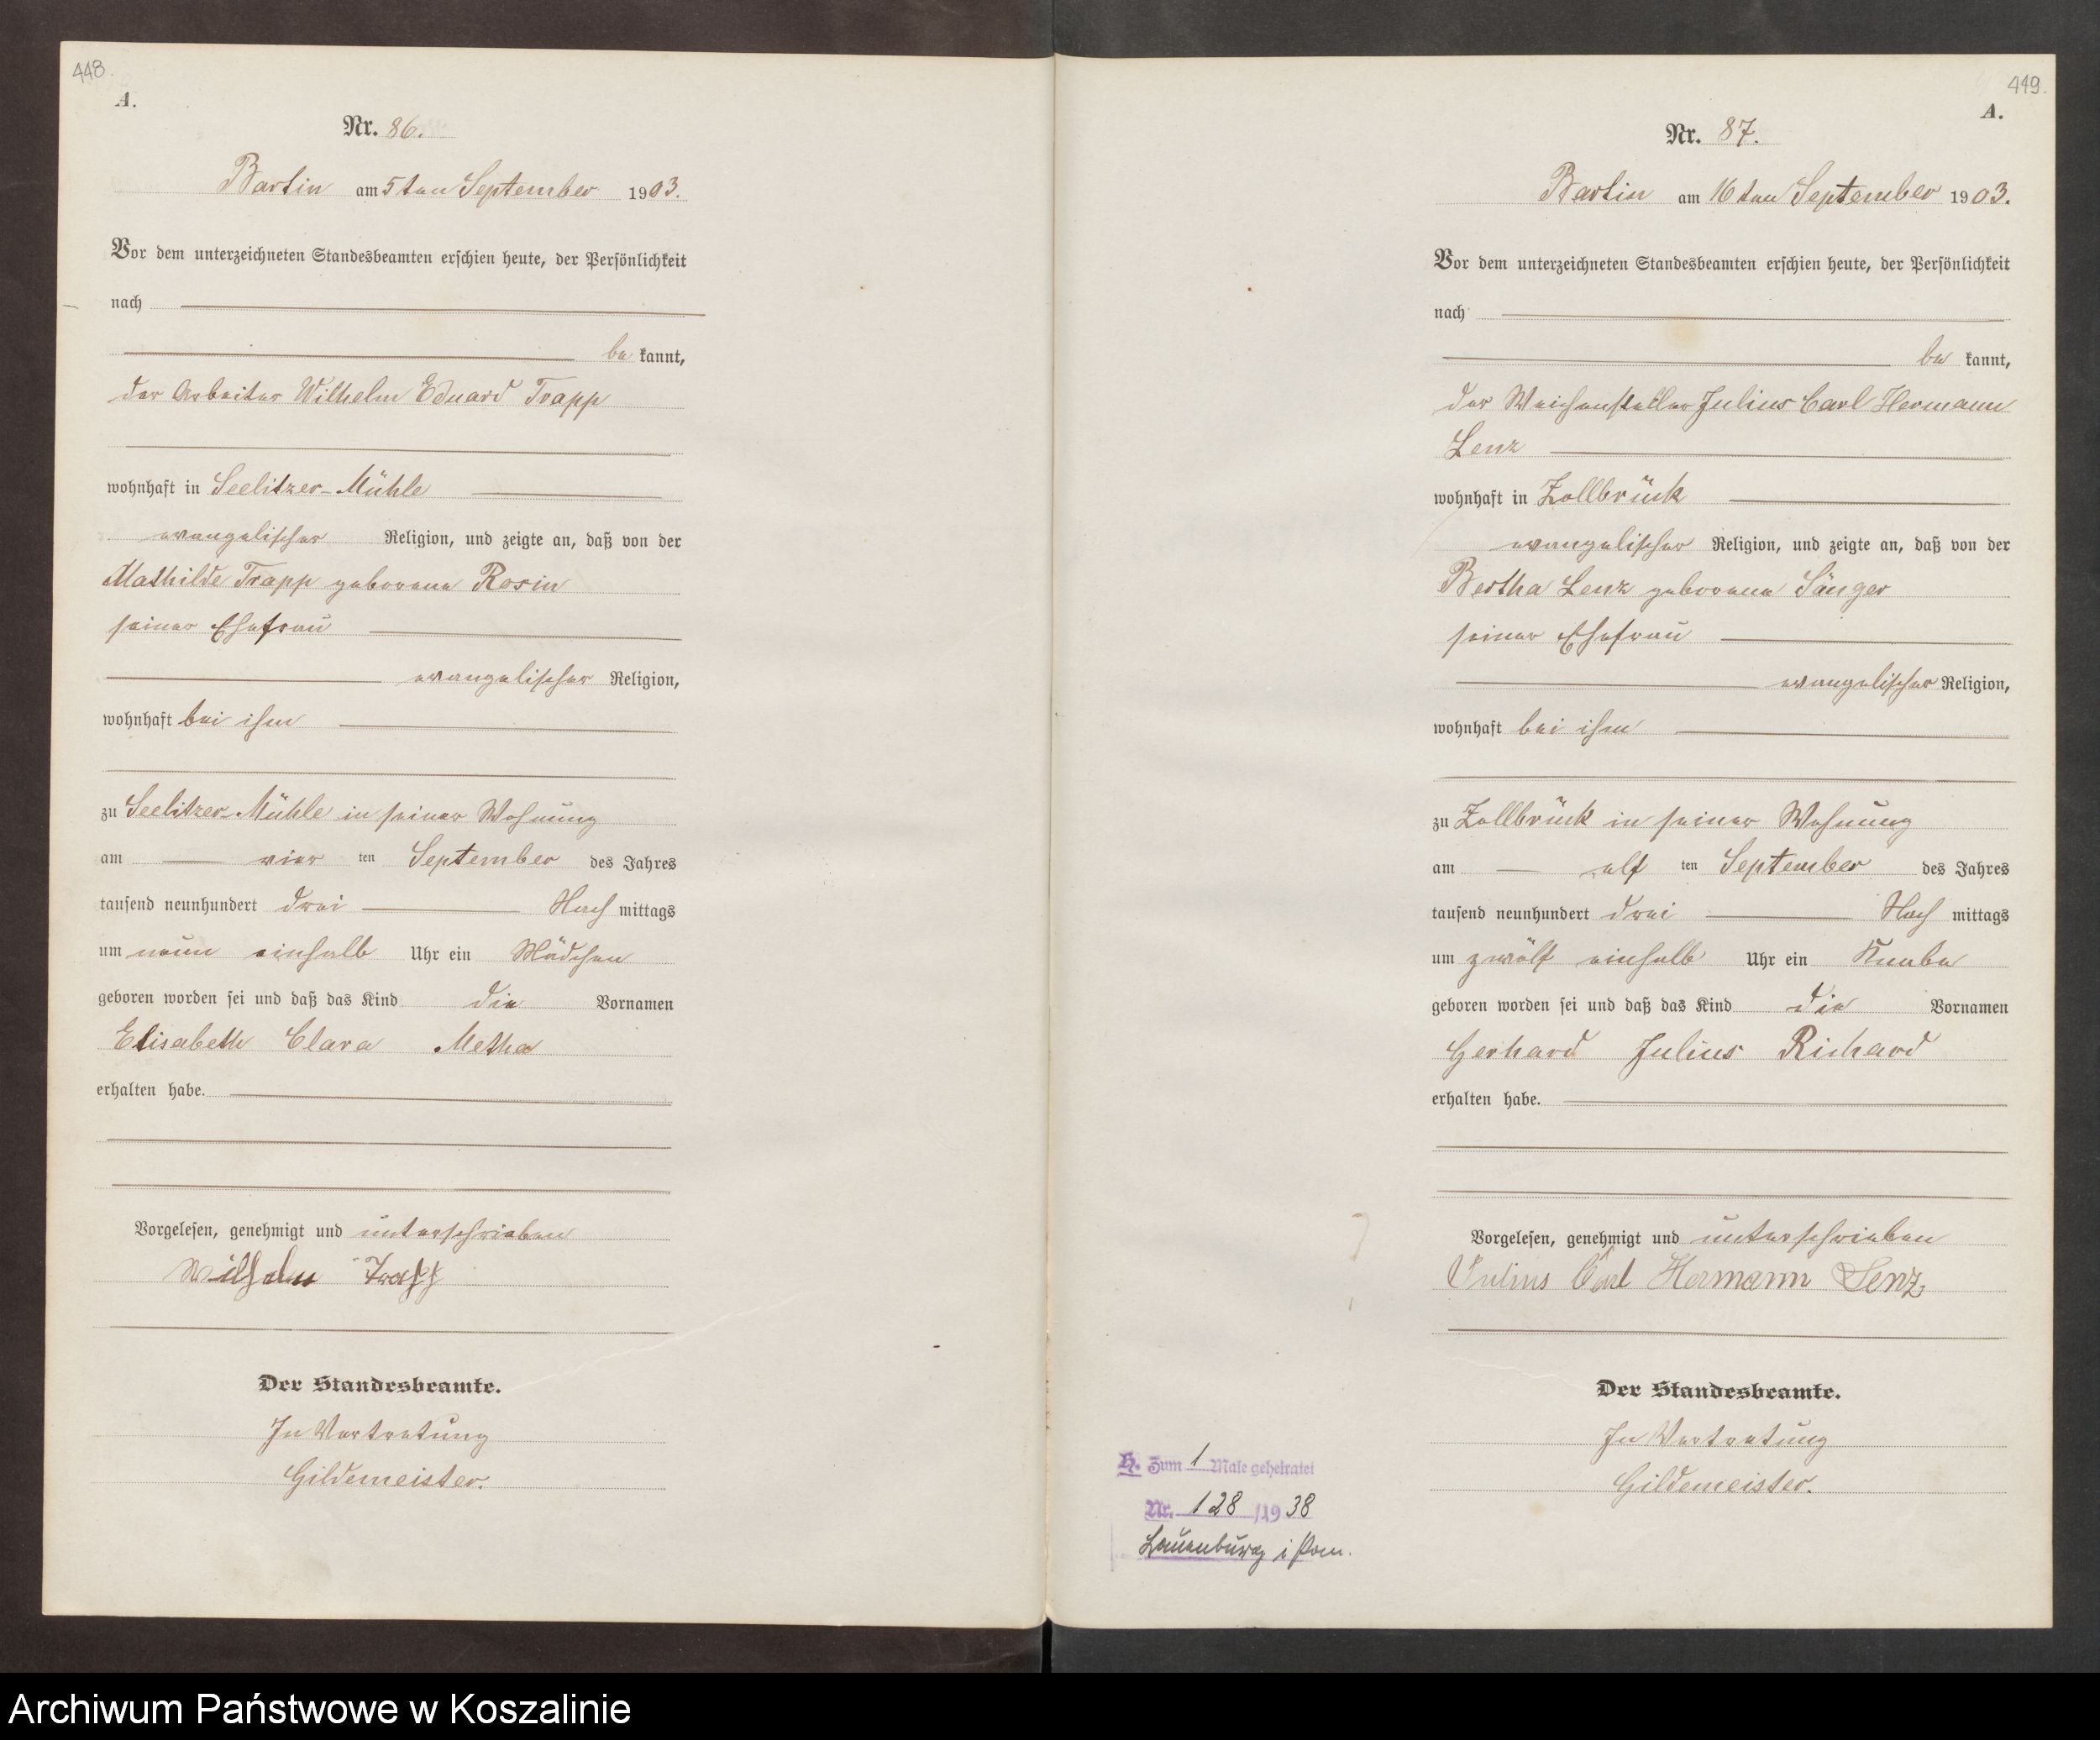 448.
A.
Nr. 86.
Bartin am 5ten September 1903.
Vor dem unterzeichneten Standesbeamten erschien heute, der Persönlichkeit
nach
be kannt,
der Arbeiter Wilhelm Eduard Trapp
wohnhaft in Seelitzer-Mühle
evangelischer Religion, und zeigte an, daß von der
Mathilde Trapp geborene Rosin
seiner Ehefrau
evangelischer Religion,
wohnhaft bei ihm
zu Seelitzer-Mühle in seiner Wohnung
am vier ten September des Jahres
tausend neunhundert drei Nach mittags
um neun einhalb Uhr ein Mädchen
geboren worden sei und daß das Kind die Vornamen
Elisabeth Clara Metha
erhalten habe.
Vorgelesen, genehmigt und unterschrieben
Wilhelm Trapp
Der Standesbeamte.
In Vertretung
Gildemeister.
449.
A.
Nr. 87.
Bartin am 16ten September 1903.
Vor dem unterzeichneten Standesbeamten erschien heute, der Persönlichkeit
nach
be kannt,
der Weichensteller Julius Carl Hermann
Lenz
wohnhaft in Zollbrück
evangelischer Religion, und zeigte an, daß von der
Bertha Lenz geborene Sänger
seiner Ehefrau
evangelischer Religion,
wohnhaft bei ihm
zu Zollbrück in seiner Wohnung
am elf ten September des Jahres
tausend neunhundert drei Nach mittags
um zwölf einhalb Uhr ein Knabe
geboren worden sei und daß das Kind die Vornamen
Gerhard Julius Richard
erhalten habe.
Vorgelesen, genehmigt und unterschrieben
Julius Carl Hermann Lenz
Der Standesbeamte.
In Vertretung
Gildemeister.
H. Zum 1 Male geheiratet
Nr. 128 /1938
Lauenburg i Pom.
Archiwum Państwowe w Koszalinie